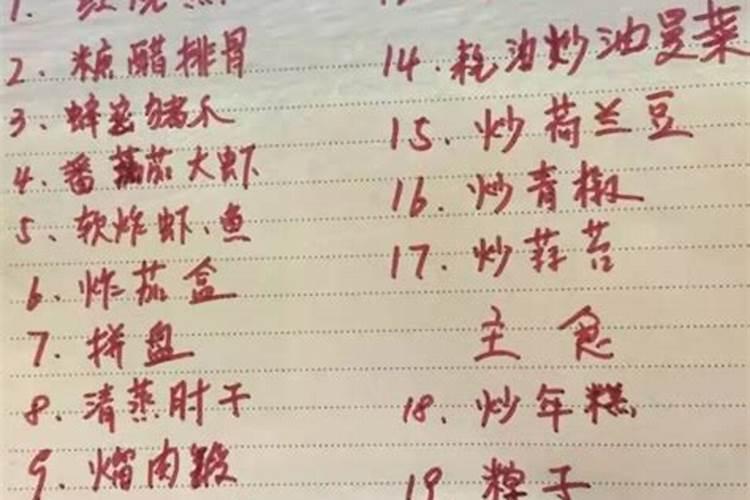 1. 红烧
2、糖醋排骨
3、蜂蜜猪爪
4、番茄大虾
5、软炸虾、鱼
6、炸茄盒
7. 拼盘
8、清蒸肘干
9、熘肉段
14. 耗油炒油麦菜
15、炒荷兰豆
16、炒青椒
17、炒蒜苔
主食
18、炒年糕
19 粽子